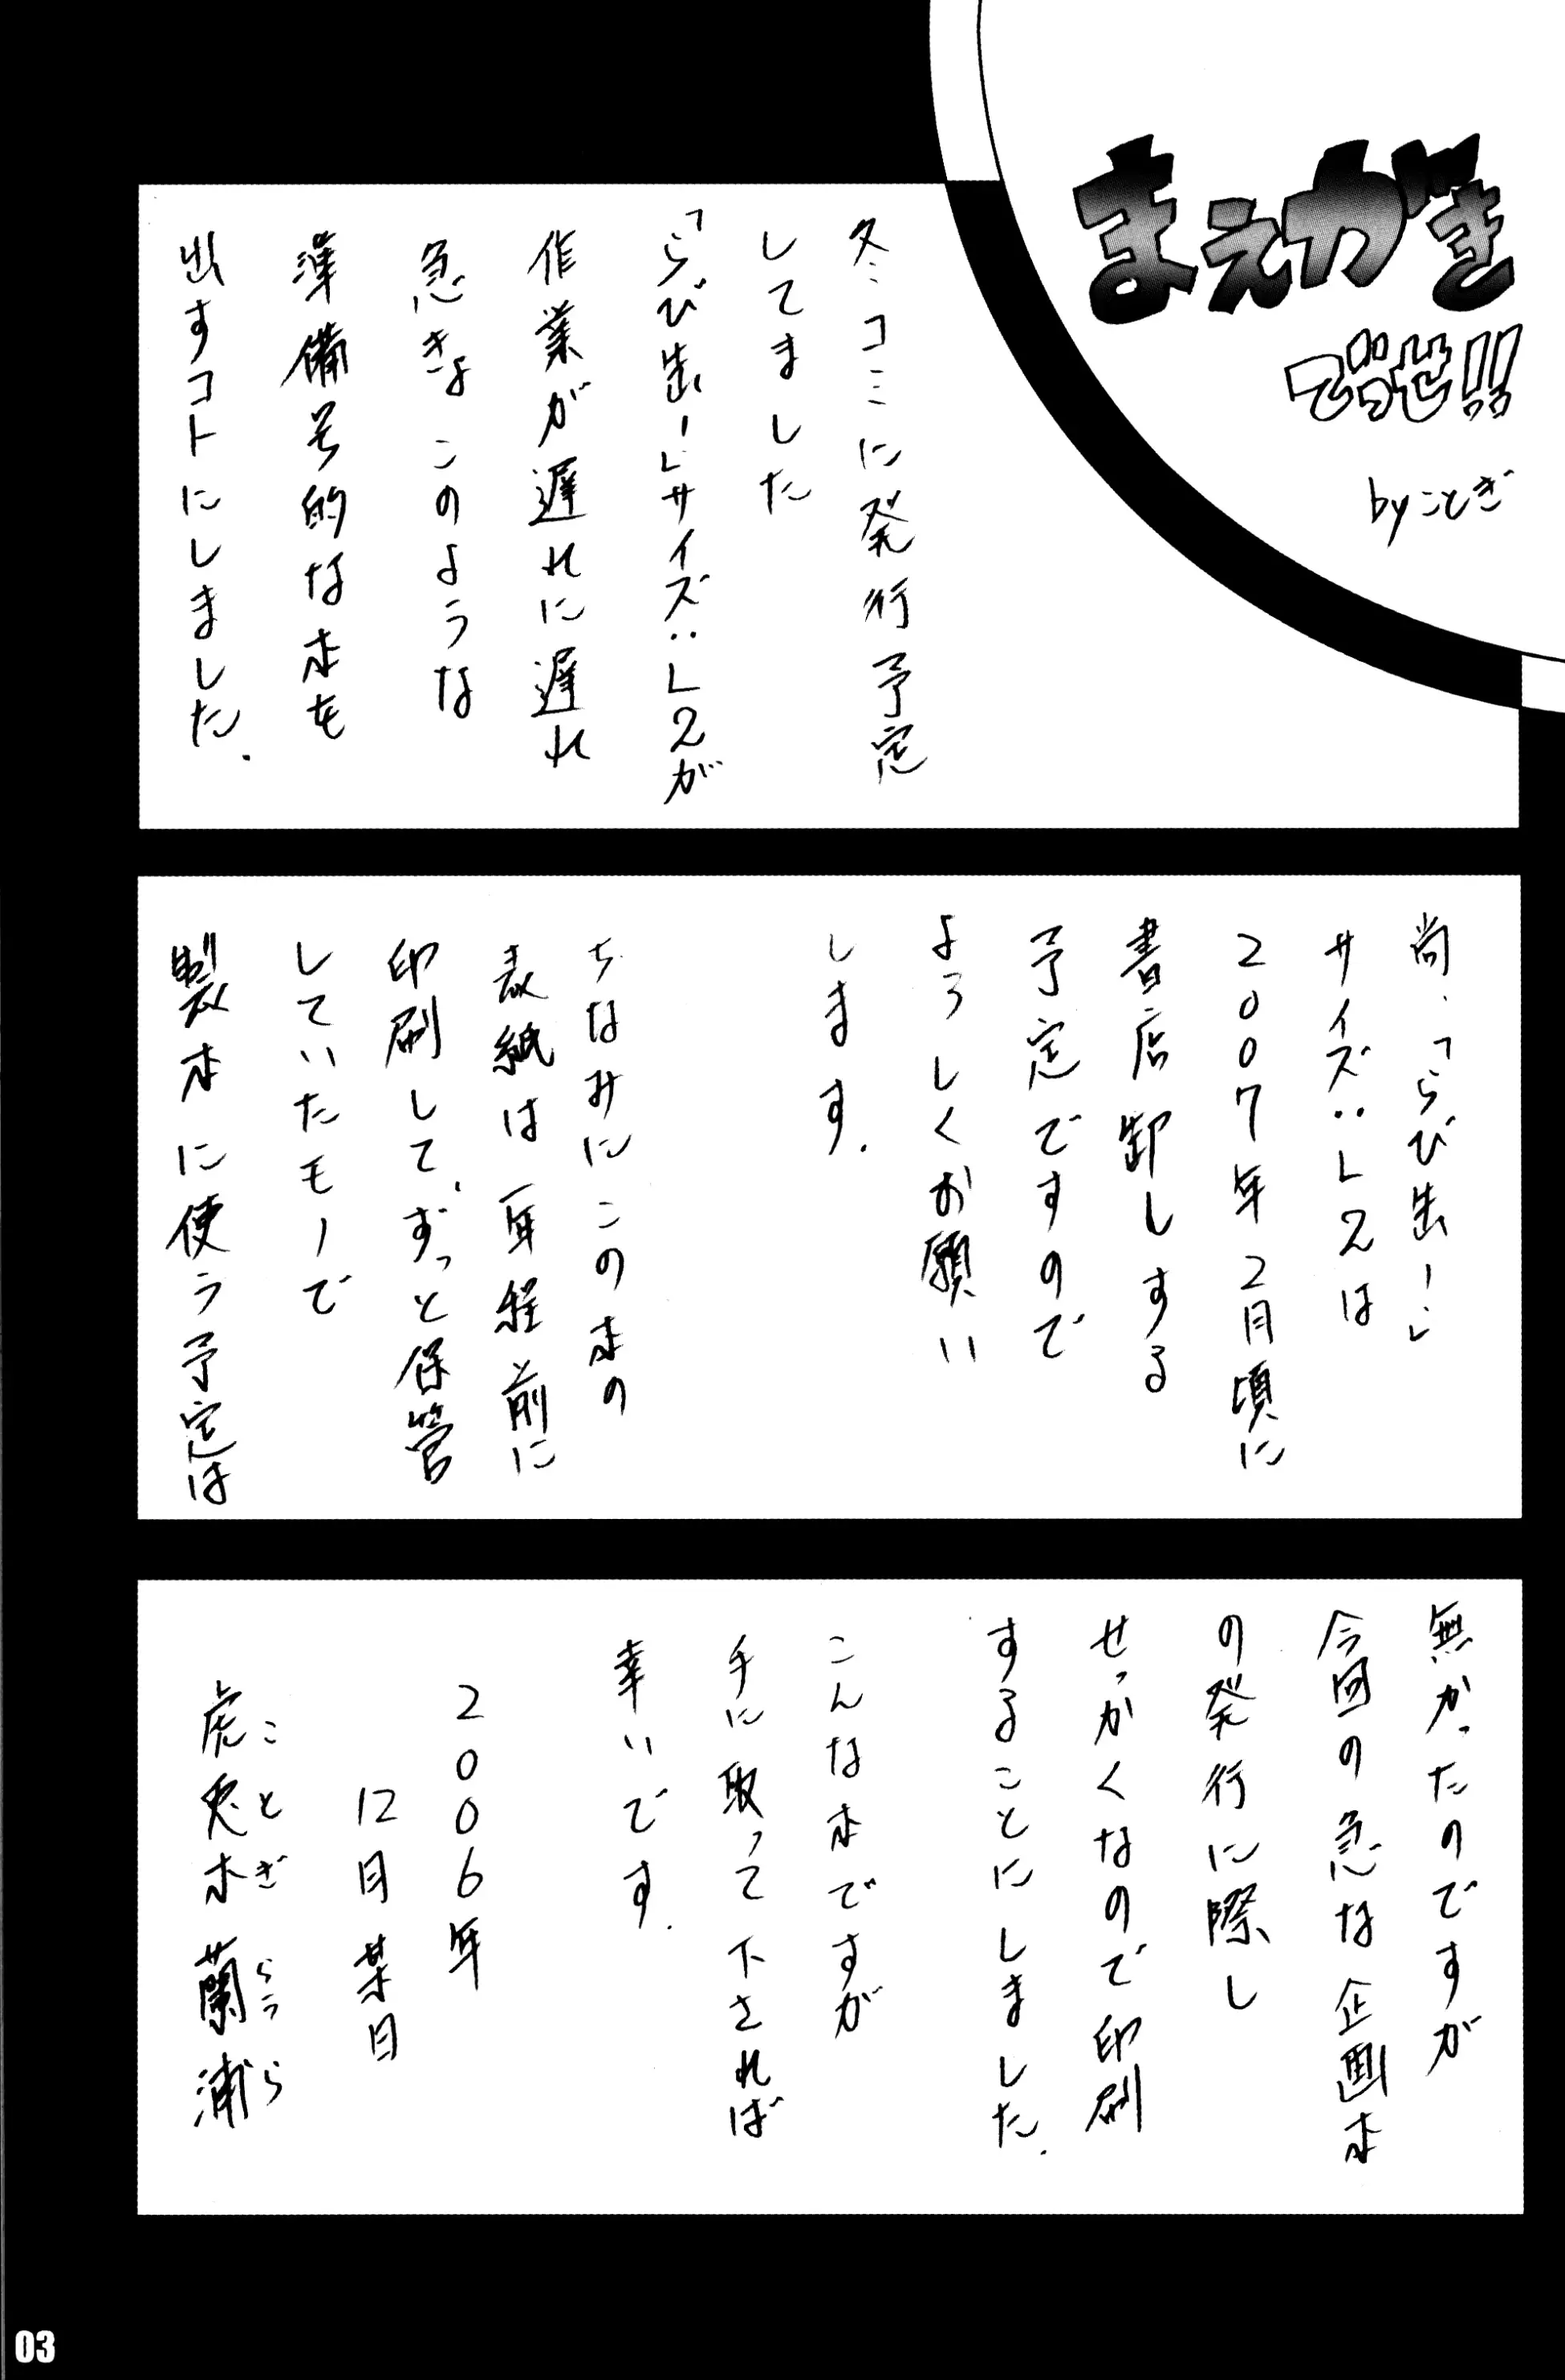 まえがき
でっせ!!
byことぎ
冬コミに発行予定
してました
「らび出ー」サイズ:L2が
作業が遅れに遅れ
急きょこのような
準備号的な本を
出すコトにしました.
尚、「らび出ー」
サイズ:L2は
2007年2月頃に
書店卸しする
予定ですので
よろしくお願い
します.
ちなみにこの本の
表紙は一年程前に
印刷して、ずっと保管
していたモノで
製本に使う予定は
無かったのですが
今回の急な企画本
の発行に際し
せっかくなので印刷
することにしました.
こんな本ですが
手に取って下されば
幸いです.
2006年
12月某日
ことぎ らうら
虎兎木 蘭浦
03